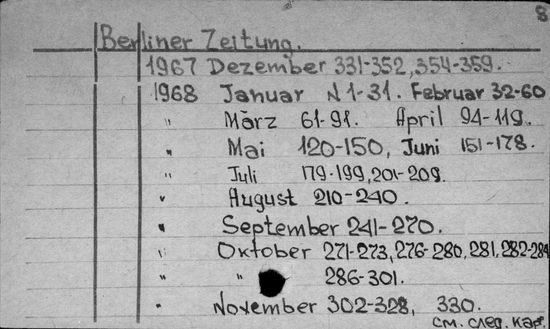 8
Berliner Zeitung.
1967 Dezember 331-352, 354-359.
1968 Januar N 1-31. Februar 32-60
" März 61-91. April 94-119.
" Mai 120-150, Juni 151-178.
" Juli 179-199, 201-209.
" August 210-240.
" September 241-270.
" Oktober 271-273, 276-280, 281, 282-284
" " 286-301.
" November 302-328, 330.
см. след. карт.